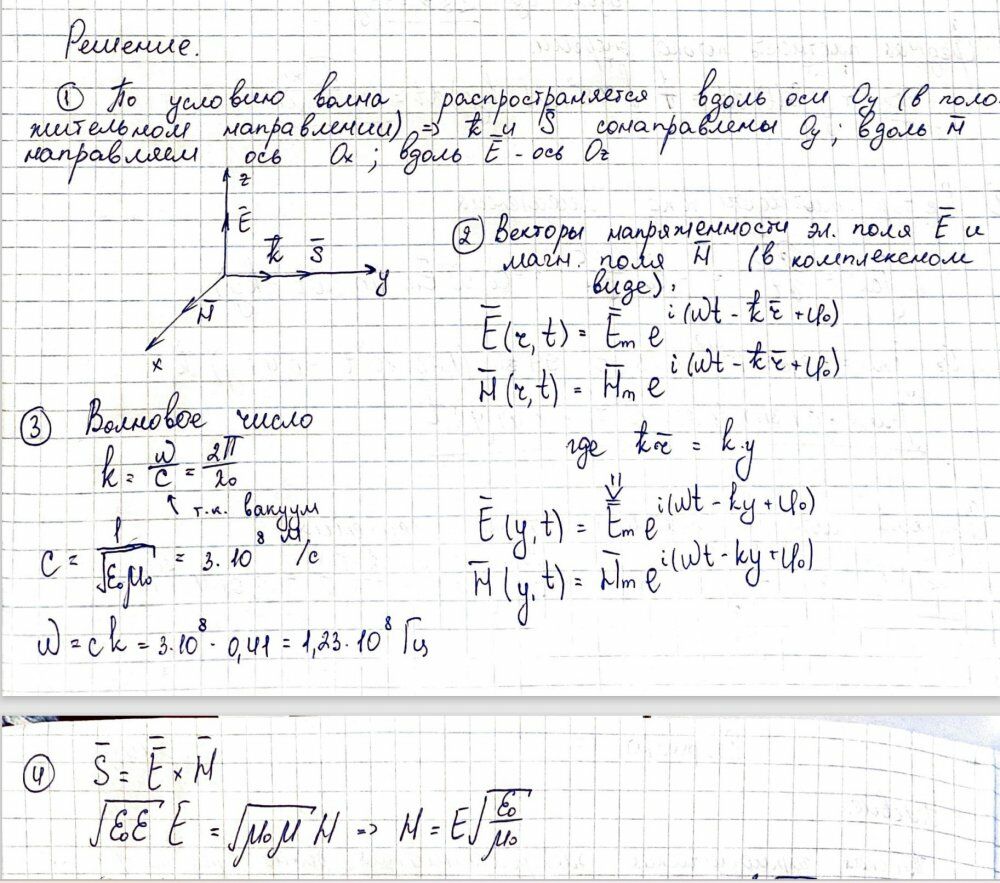 Решение.
① По условию волна распространяется вдоль оси Oy (в поло-
жительном направлении) => k̄ и S̄ сонаправлены Oy; вдоль H̄
направляем ось Ox; вдоль Ē - ось Oz
z
Ē
k̄ S̄
y
H̄
x
② Векторы напряженности эл. поля Ē и
магн. поля H̄ (в комплексном
виде):
Ē(r,t) = Ēm e^i(ωt - k̄r̄ + φ₀)
H̄(r,t) = H̄m e^i(ωt - k̄r̄ + φ₀)
где k̄r̄ = k·y
⇓
Ē(y,t) = Ēm e^i(ωt - ky + φ₀)
H̄(y,t) = H̄m e^i(ωt - ky + φ₀)
③ Волновое число
k = ω/c = 2π/λ₀
↑ т.к. вакуум
c = 1/√(ε₀μ₀) = 3·10⁸ м/с
ω = ck = 3·10⁸ · 0,41 = 1,23·10⁸ Гц
④ S̄ = Ē × H̄
√(ε₀ε) E = √(μ₀μ) H => H = E√(ε₀/μ₀)